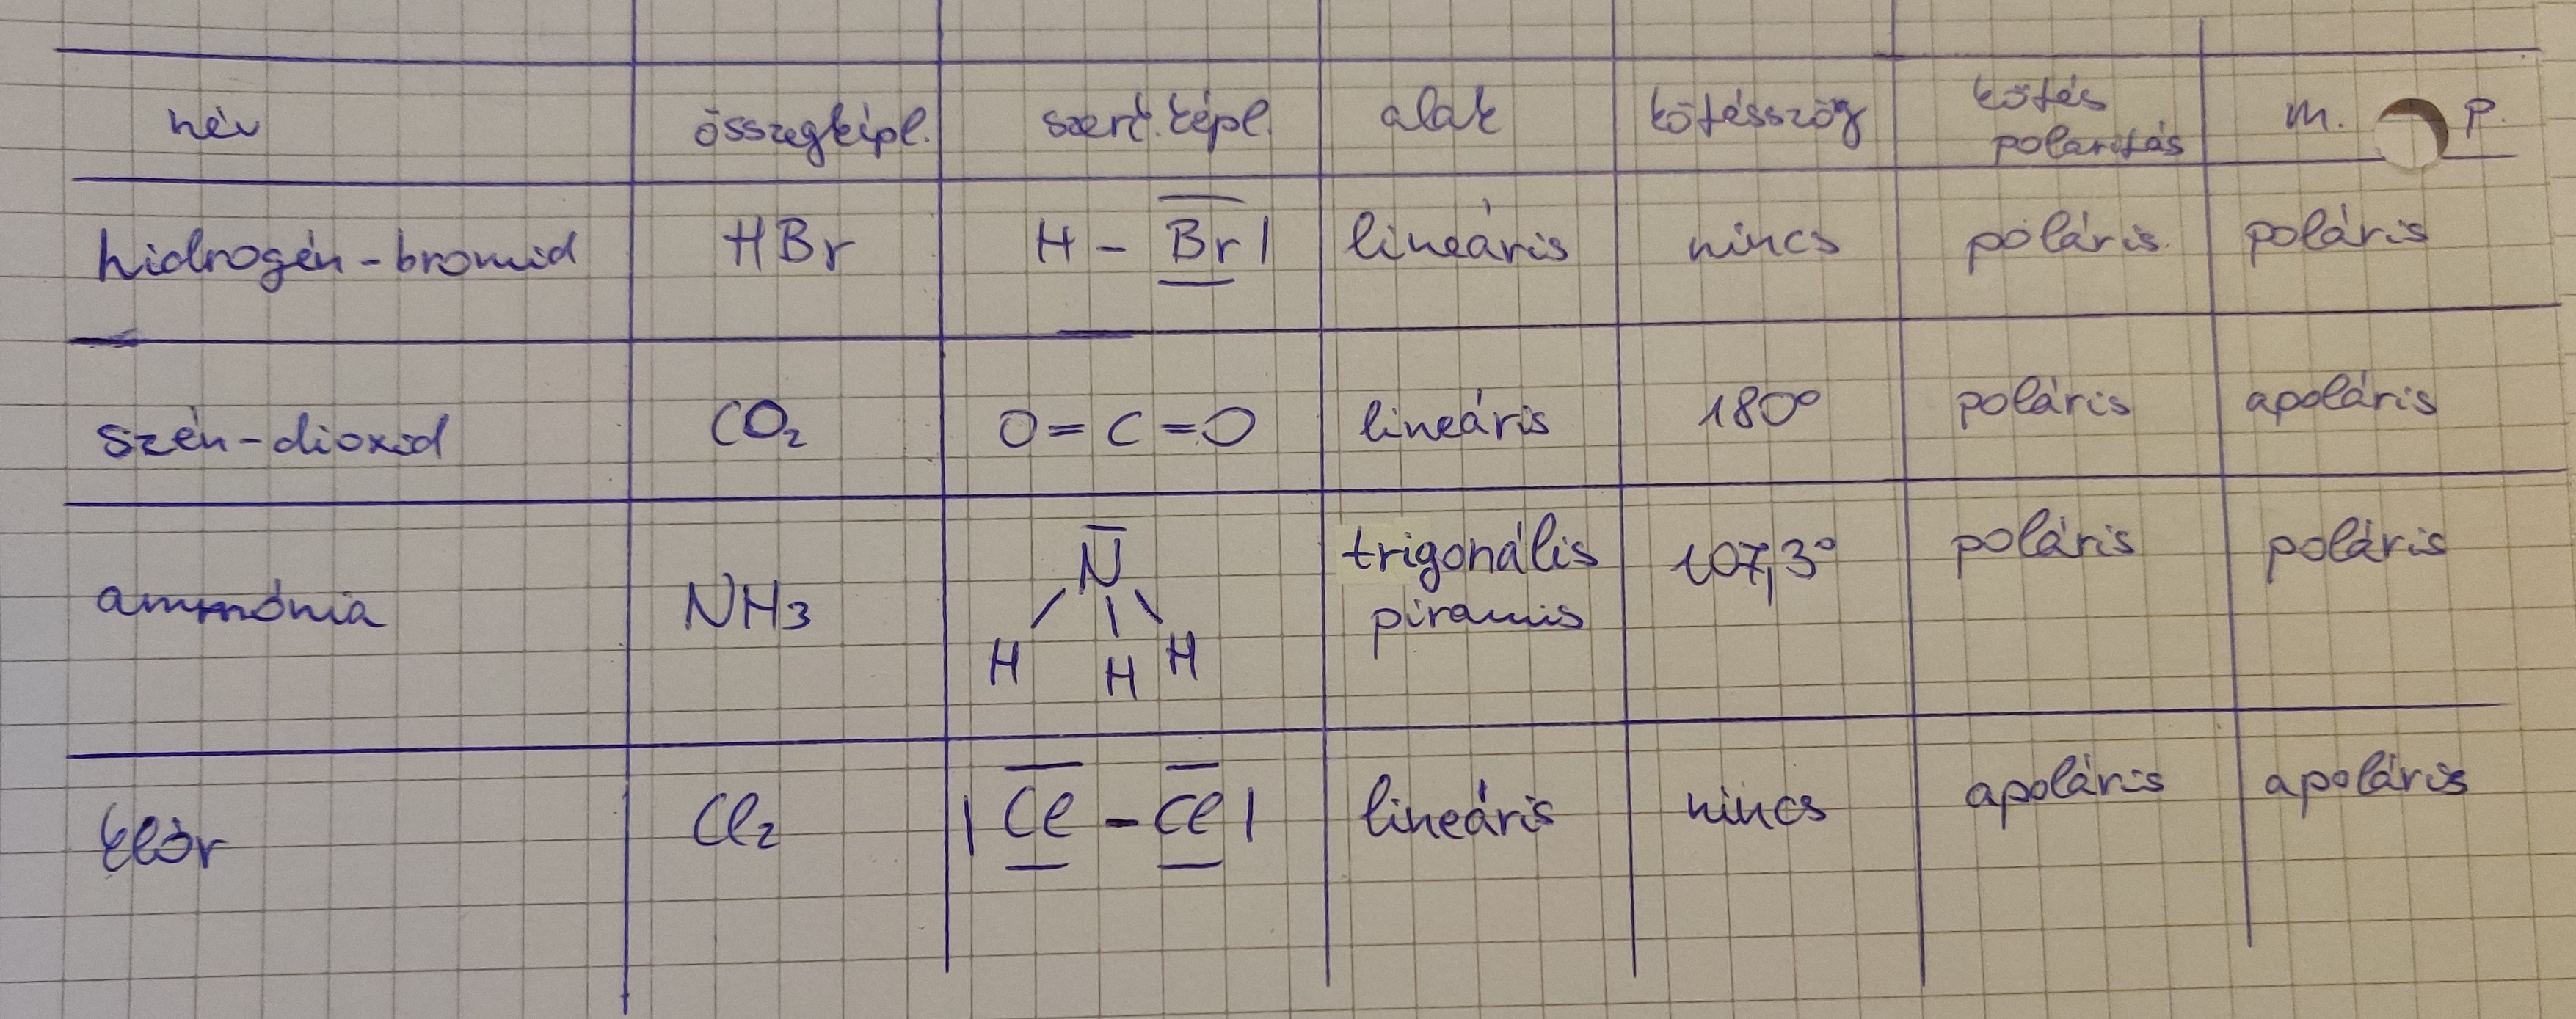 név összegképl. szerk.képl. alak kötésszög kötés polaritás m. p.
hidrogén-bromid HBr H - Br| lineáris nincs poláris poláris
szén-dioxid CO₂ O=C=O lineáris 180° poláris apoláris
ammónia NH3 N H H H trigonális piramis 107,3° poláris poláris
klór Cl₂ |Cl-Cl| lineáris nincs apoláris apoláris